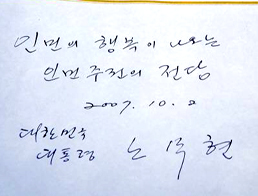 인민의 행복이 나오는
인민 주권의 전당
2007. 10. 2
대한민국
대통령 노무현